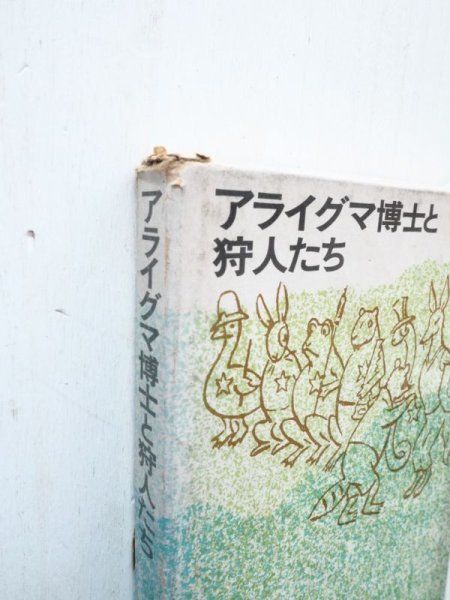 アライグマ博士と
狩人たち
アライグマ博士と狩人たち